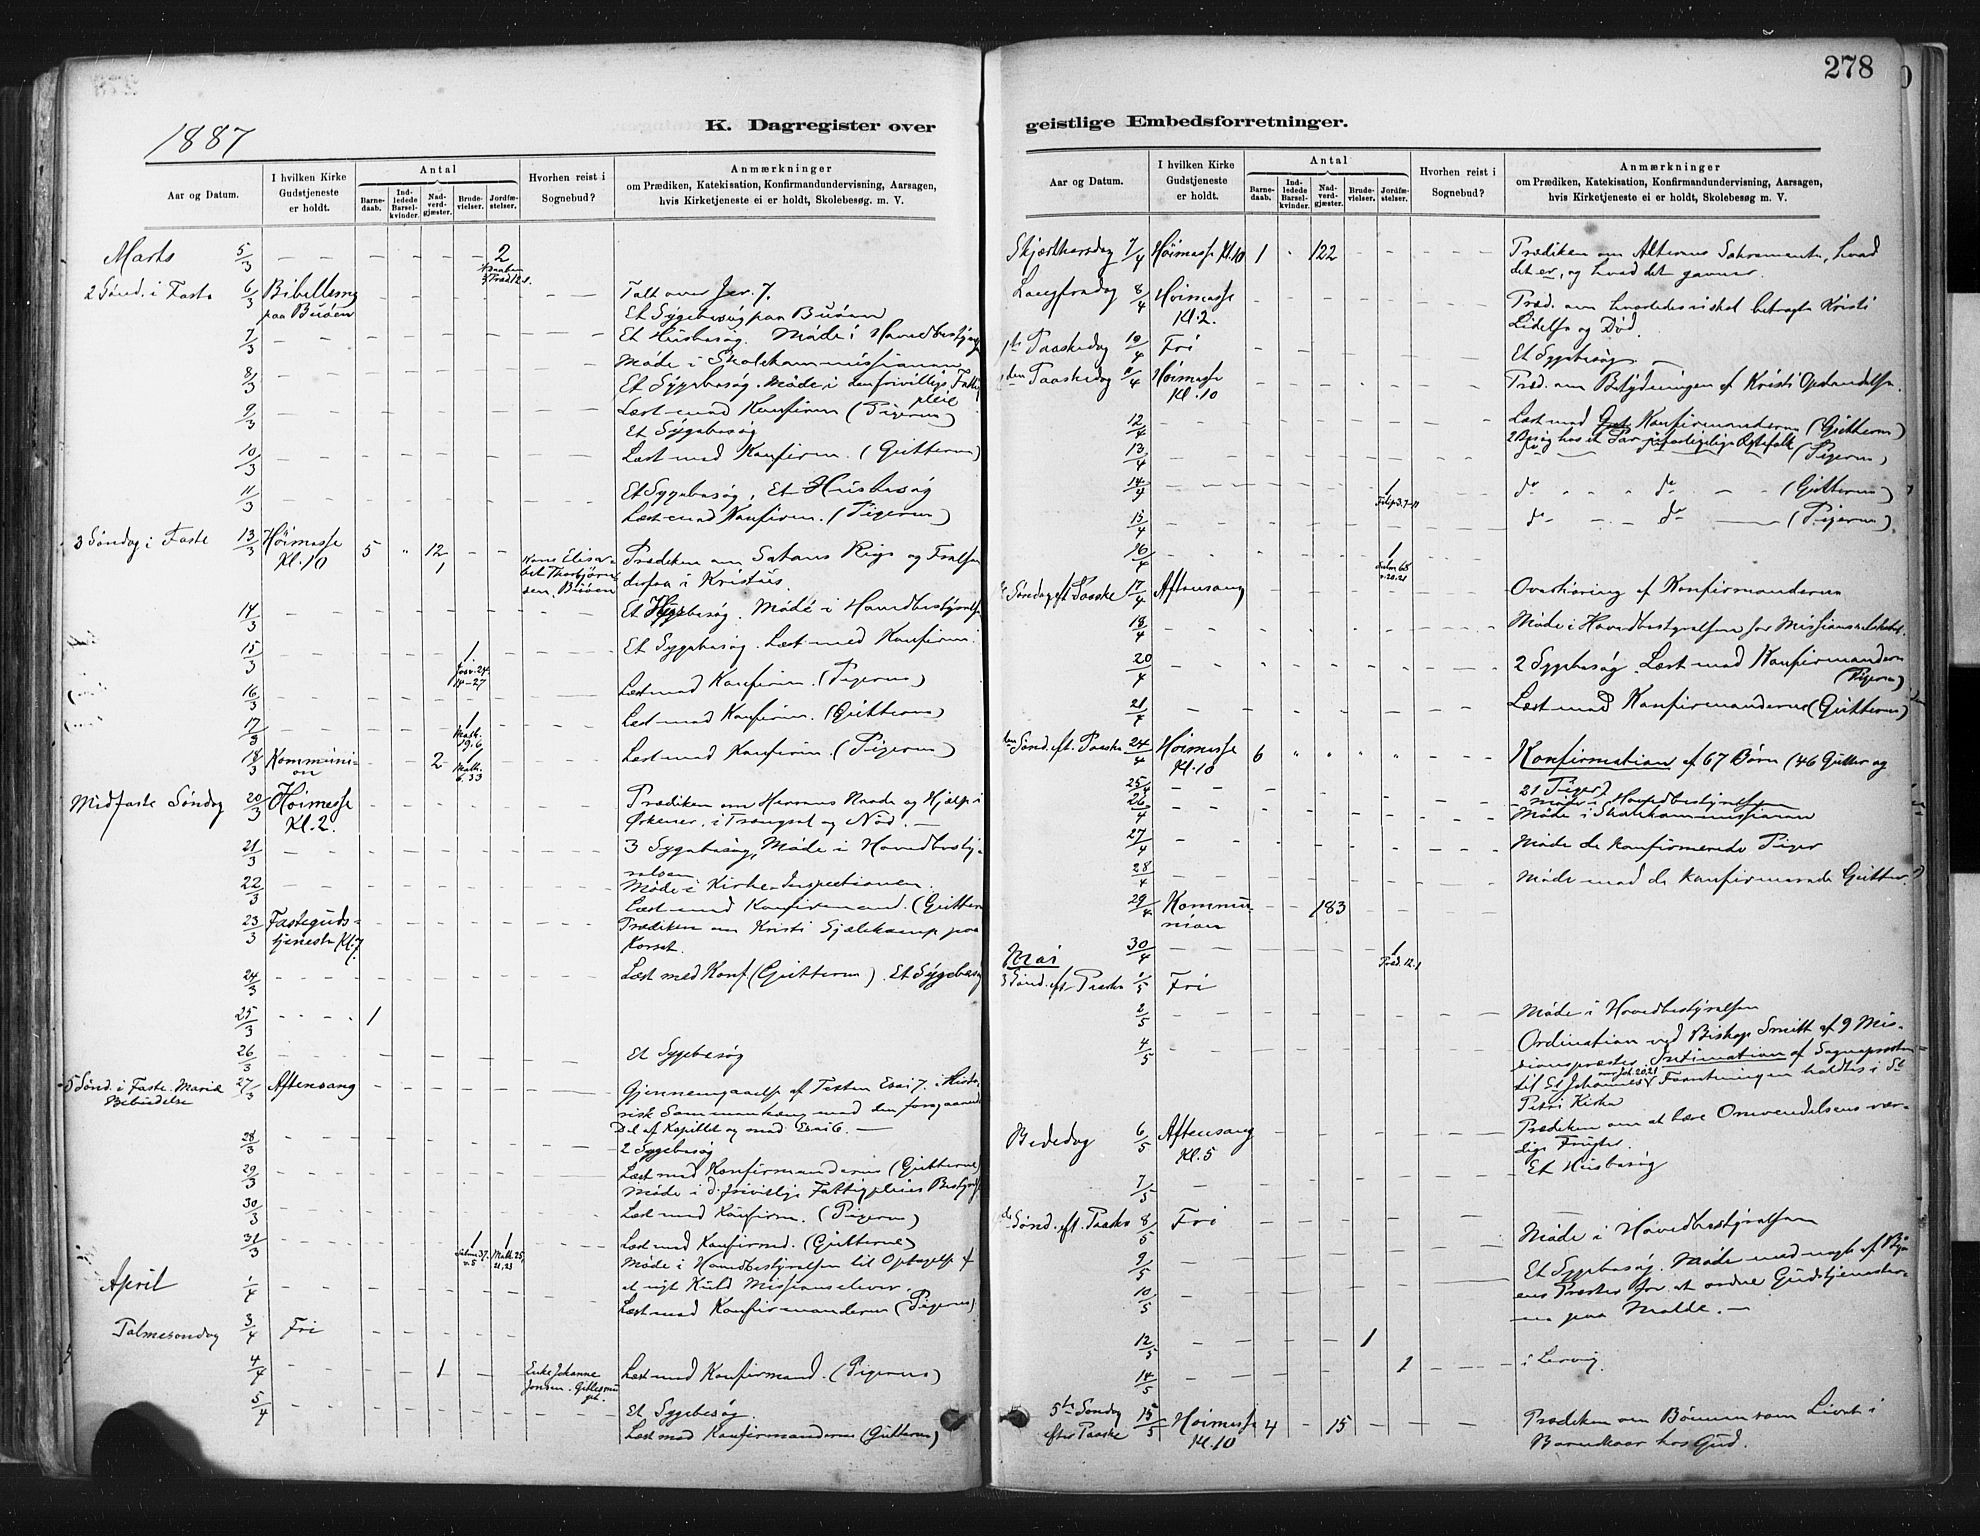 278
1887
K. Dagregister over
geistlige Embedsforretninger.
Aar og Datum.
I hvilken Kirke
Gudstjeneste
er holdt.
Antal
Barne-
daab.
Ind-
ledede
Barsel-
kvinder.
Nad-
verd-
gjæster.
Brude-
vielser.
Jordfæ-
stelser.
Hvorhen reist i
Sognebud?
Anmærkninger
om Prædiken, Katekisation, Konfirmandundervisning, Aarsagen,
hvis Kirketjeneste ei er holdt, Skolebesøg. m. V.
Marts 5/3 2
2 Sønd. i Faste 6/3 Bibellæsng Talt over Jer. 7.
paa Buøen Et Sygebesøg paa Buøen
7/3 Et Husbesøg. Møde i Hovedbestyr
Møde i Skolekommissionen
8/3 Et Sygebesøg. Møde i den frivillige Fattig
pleie
9/3 Læst med Konfirm (Pigerne)
Et Sygebesøg
10/3 Læst med Konfirm. (Gutterne)
11/3 Et Sygebesøg, Et Husbesøg
Læst med Konfirm. (Pigerne)
3 Søndag i Faste 13/3 Høimesse 5 " 12 Prædiken om Satans Rige og Frelsen
Kl. 10 1 derfra i Kristus
14/3 besøg. Møde i Hovedbestyrelse
15/3 1 Et Sygebesøg. Læst med Konfirm.
24. 14-27
16/3 Læst med Konfirm. (Pigerne)
17/3 1 Læst med Konfirm. (Gutterne)
Math. 19.6
18/3 Kommuni- 2 1 Læst med Konfirm. (Pigerne)
on Math. 6.33
Midfaste Søndag 20/3 Høimesse Prædiken om Herrens Naade og Hjælp i
Kl. 2. Ørkener, i Trængsel og Nød.
21/3 3 Sygebesøg, Møde i Hovedbesty-
relsen
22/3 Møde i Kirke-Inspectionen.
Læst med Konfirmand. (Gutterne
23/3 Fastegud- Prædiken om Kristi Sjælekamp paa
tjeneste Kl. 7. Korset.
24/3 Læst med Konf (Gutterne). Et Sygebesøg
25/3 1
26/3 Et Sygebesøg
5 Sønd. i Faste. Mariæ 27/3 Aftensang Gjennemgaaelse af Texten Esai 7. i Histo
Bebudelse risk Sammenhæng med den foregaaende
Del af Kapitlet og med Esai 6.
28/3 2 Sygebesøg
29/3 Læst med Konfirmanderne (Gutterne)
Møde i d. frivillige Fattigpleies Bestyrelse
30/3 Læst med Konfirm. (Pigerne)
31/3 1 1 Læst med Konfirmd. (Gutterne)
Salme 37. v. 5 Math. 25, 21,23 Møde i Hovedbestyrelsen til Optagelse af
et nyt Kuld Missionselever.
April 1/4 Læst med Konfirmanderne (Pigerne)
Palmesøndag 3/4 Fri
4/4 1 Enke Johanne Læst med Konfirmand. (Pigerne)
5/4 Et Sygebesøg.
Læst med Konfirmanderne (Gutterne)
Skjærthorsdag 7/4 Høimesse Kl. 10 1 " 122 Prædiken om Alterens Sakramente, hvad
det er, og hvad det gavner.
Langfredag 8/4 Høimesse Præd. om hvorledes vi skal betragte Kristi
Kl. 2. Lidelse og Død.
1ste Paaskedag 10/4 Fri Et Sygebesøg.
den Paaskedag 11/4 Høimesse Præd. om Betydningen af Kristi Opstandelse.
Kl. 10
12/4 Læst med Konfirmanderne (Gutterne)
2 Besøg hos et Par Ægtefolk
13/4 (Pigerne)
14/4 1 do do (Gutterne)
15/4 do do (Pigerne)
16/4 1
Søndag eft. Paaske 17/4 Aftensang Overhøring af Konfirmanderne
18/4 Møde i Hovedbestyrelsen for Missionsselskabet.
20/4 2 Sygebesøg. Læst med Konfirmanderne
(Pigerne)
21/4 Læst med Konfirmanderne (Gutterne)
den Sønd. eft. Paaske 24/4 Høimesse 6 " " " " Konfirmation af 67 Børn (46 Gutter og
Kl. 10 21 Piger)
25/4 Møde i Hovedbestyrelsen
26/4 Møde i Skolekommissionen
27/4 Møde de konfirmerede Piger
28/4 Møde med de konfirmerede Gutter.
29/4 Kommu- 183
nion
30/4 1
Præd. 12.1
Mai
3 Sønd. eft. Paaske 1/5 Fri
2/5 Møde i Hovedbestyrelsen
4/5 Ordination ved Biskop Smitt af 9 Mis-
sionsprester. Intimation af Sognepresten
til St Johannes. Forretningen holdtes i St
Petri Kirke
Bededag 6/5 Aftensang Prædiken om at bære Omvendelsens vær-
Kl. 5 dige Frugter.
7/5 Et Husbesøg
Sønd. eft. Paaske 8/5 Fri
9/5 Møde i Hovedbestyrelsen
10/5 Et Sygebesøg. Møde med af By-
ens Prester for at ordne Gudstjenester-
ne paa
12/5 1
14/5 1 i Lervig.
5te Søndag 15/5 Høimesse 4 15 Prædiken om Bønnen som Livet i
efter Paaske Kl. 10 Barnekaar hos Gud.